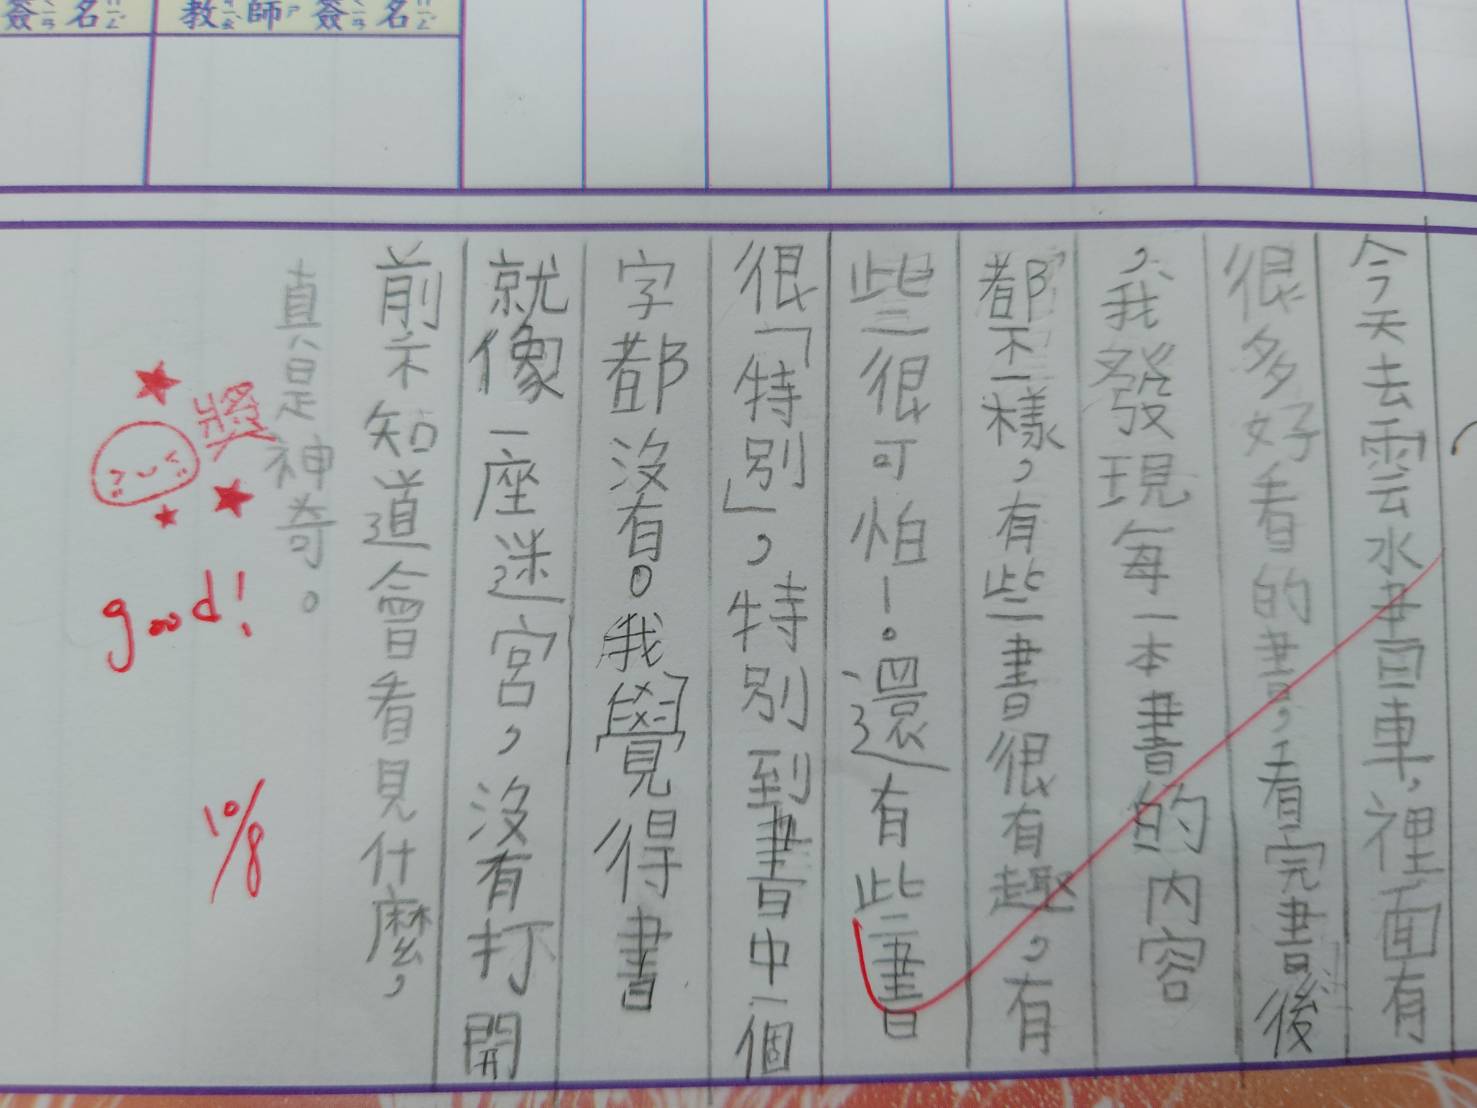 教師簽名
簽名
今天去雲水書車,裡面有
很多好看的書,看完書後
,我發現每一本書的內容
都不一樣,有些書很有趣,有
些很可怕!。還有些書
很「特別」,特別到書中一個
字都沒有。我覺得書
就像一座迷宮,沒有打開
前不知道會看見什麼,
真是神奇。
獎
good!
10/8